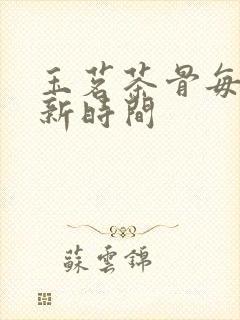 玉茗茶骨每
新時間
蘇雲錦